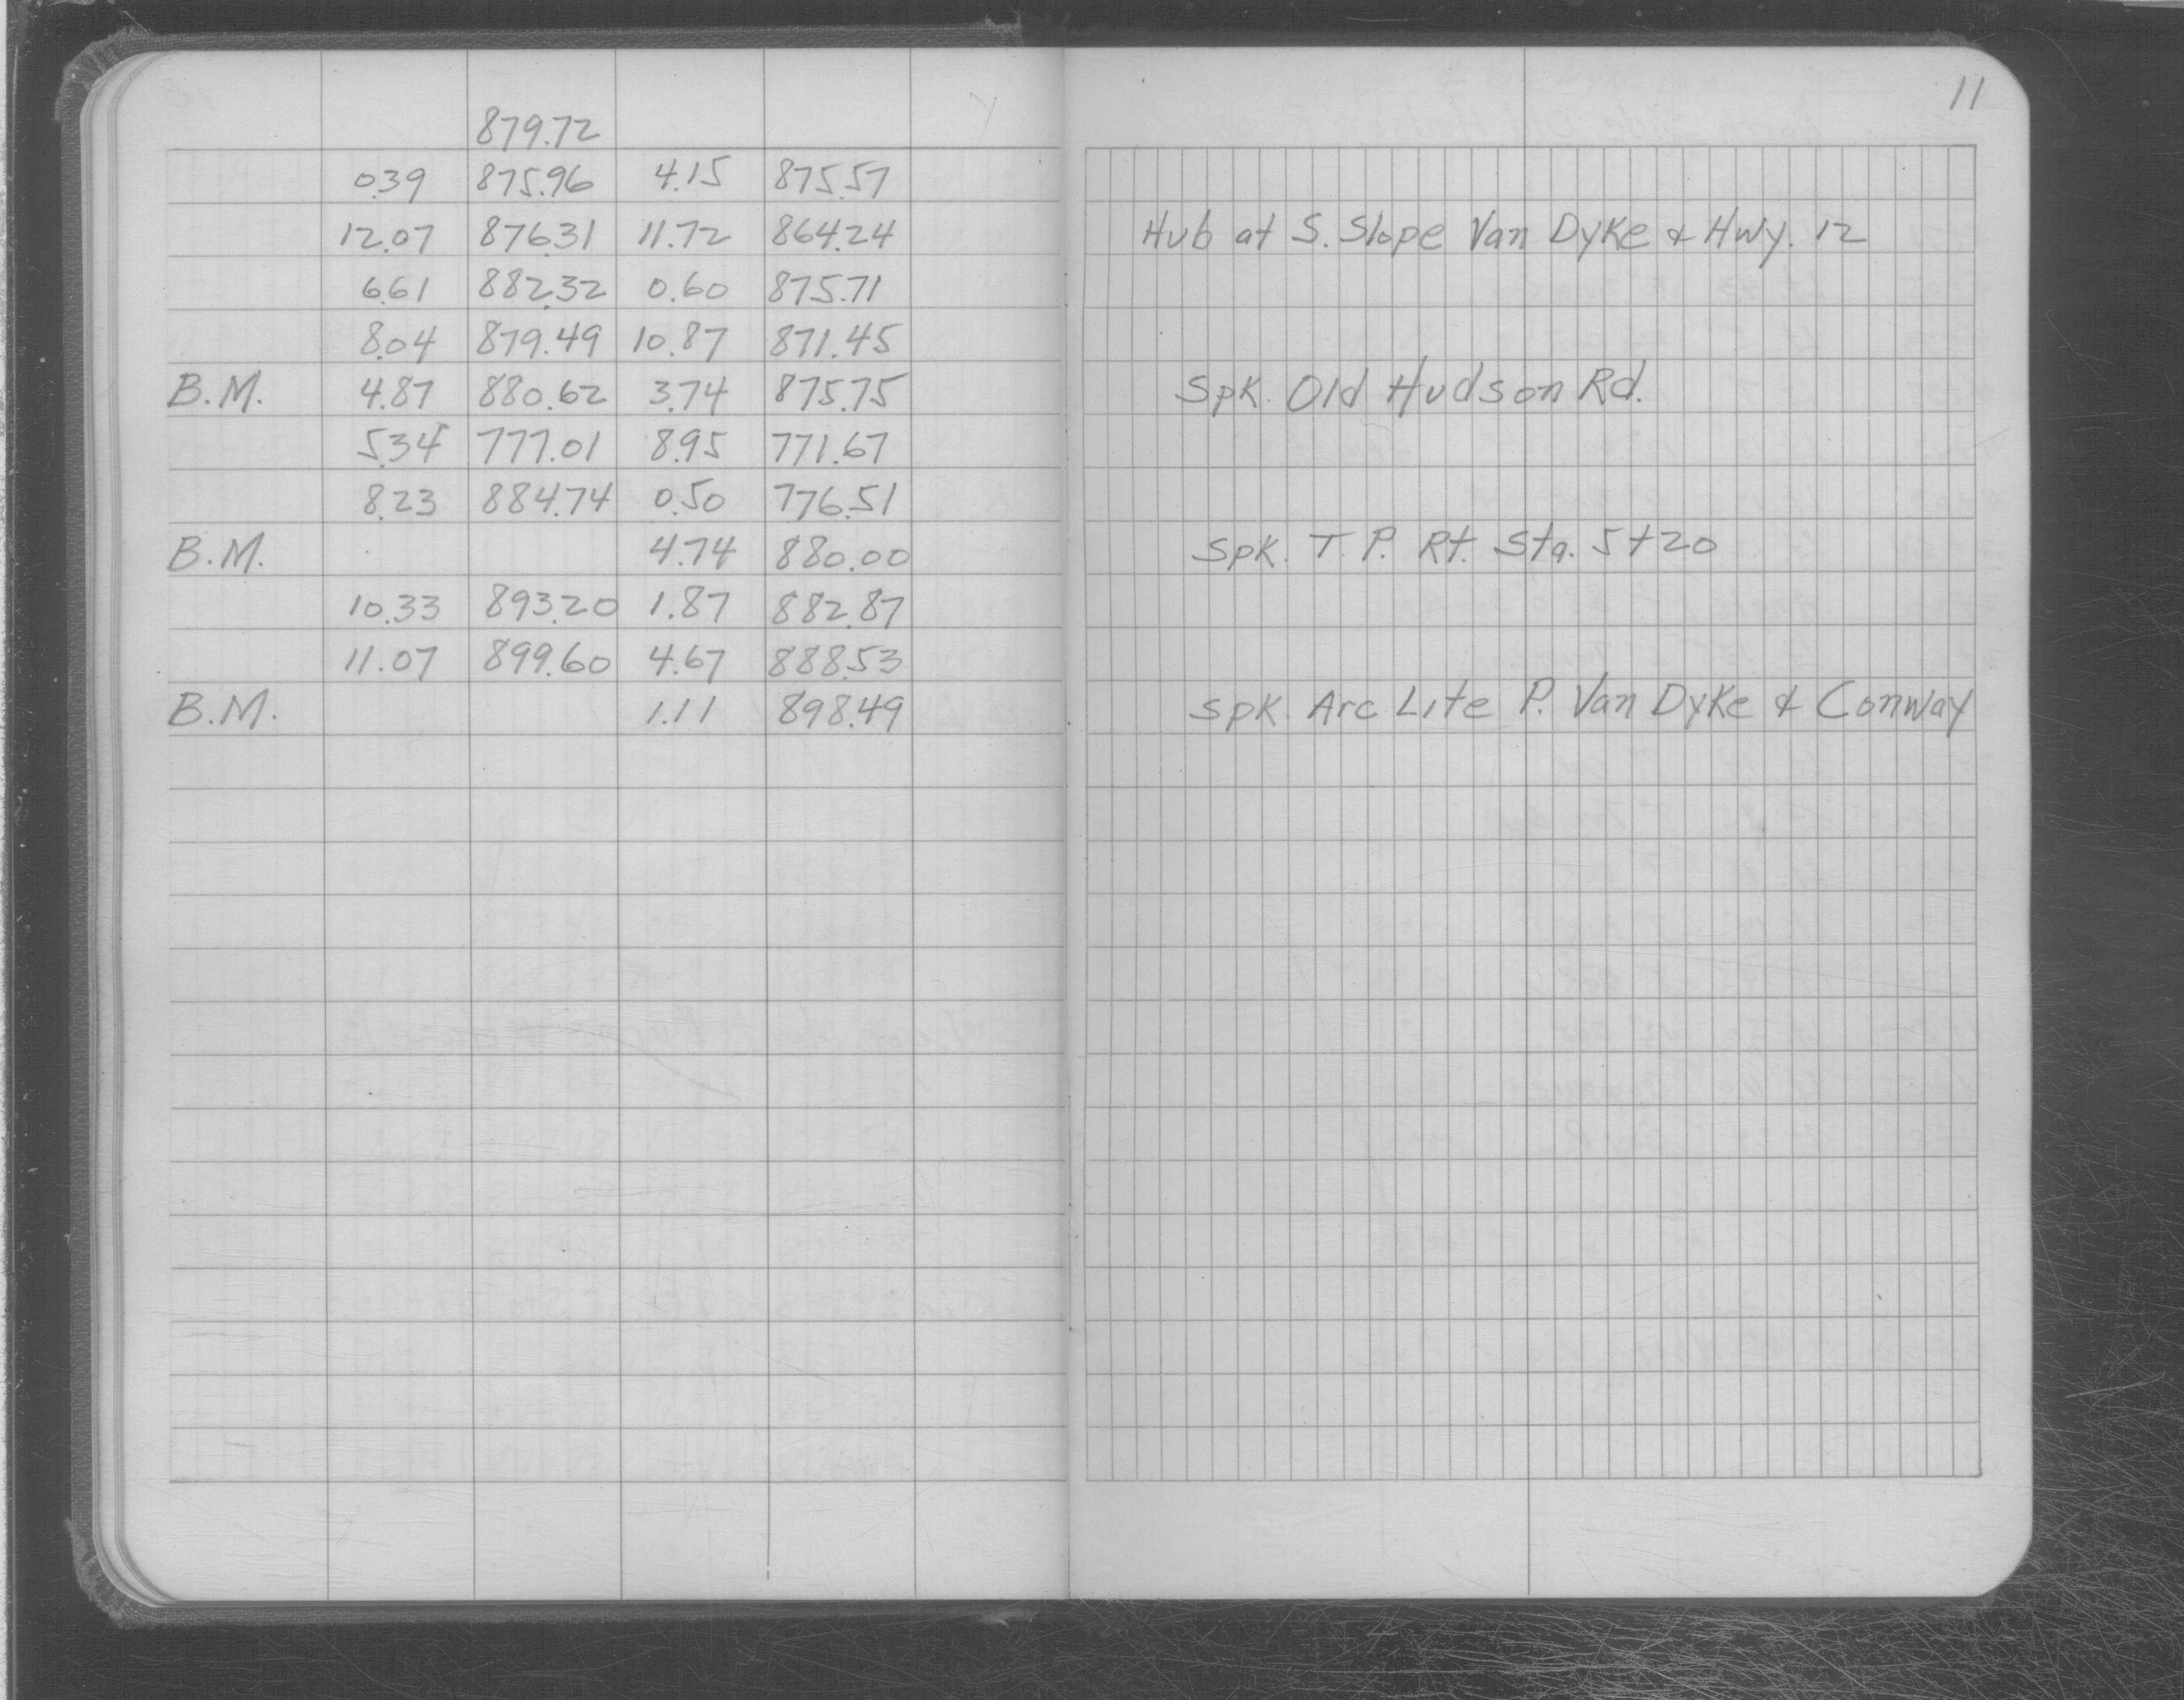 11
879.72
0.39 875.96 4.15 875.57
12.07 876.31 11.72 864.24 Hub at S. Slope Van Dyke & Hwy. 12
6.61 882.32 0.60 875.71
8.04 879.49 10.87 871.45
B.M. 4.87 880.62 3.74 875.75 Spk. Old Hudson Rd.
5.34 777.01 8.95 771.67
8.23 884.74 0.50 776.51
B.M. 4.74 880.00 Spk. T. P. Rt. Sta. 5+20
10.33 893.20 1.87 882.87
11.07 899.60 4.67 888.53
B.M. 1.11 898.49 Spk. Arc Lite P. Van Dyke & Conway